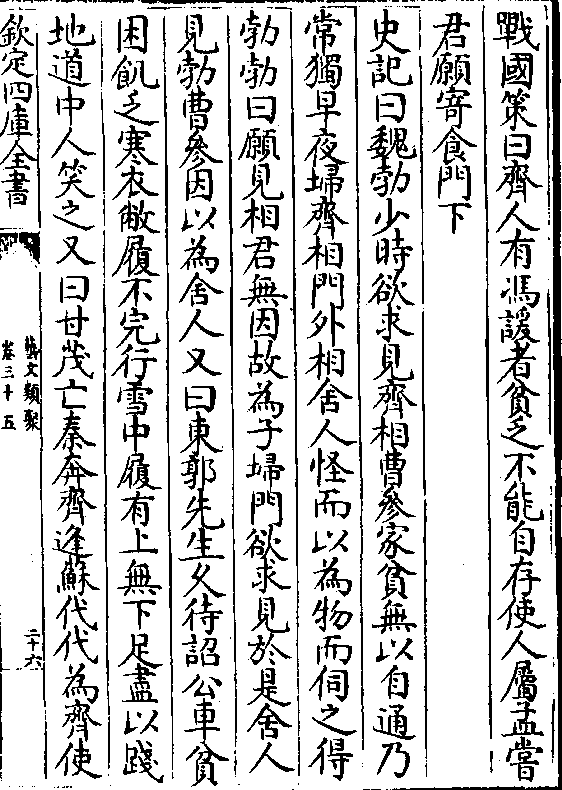 戰國策曰齊人有馮諼者貧乏不能自存使人屬孟嘗
君願寄食門下
史記曰魏勃少時欲求見齊相曹參家貧無以自通乃
常獨早夜埽齊相門外相舍人怪而以為物而伺之得
勃勃曰願見相君無因故為子埽門欲求見於是舍人
見勃曹參因以為舍人又曰東郭先生久待詔公車貧
困飢乏寒衣敝履不完行雪中履有上無下足盡以踐
地道中人笑之又曰甘茂亡秦奔齊逢蘇代代為齊使
欽定四庫全書
藝文類聚
卷三十五
二十六